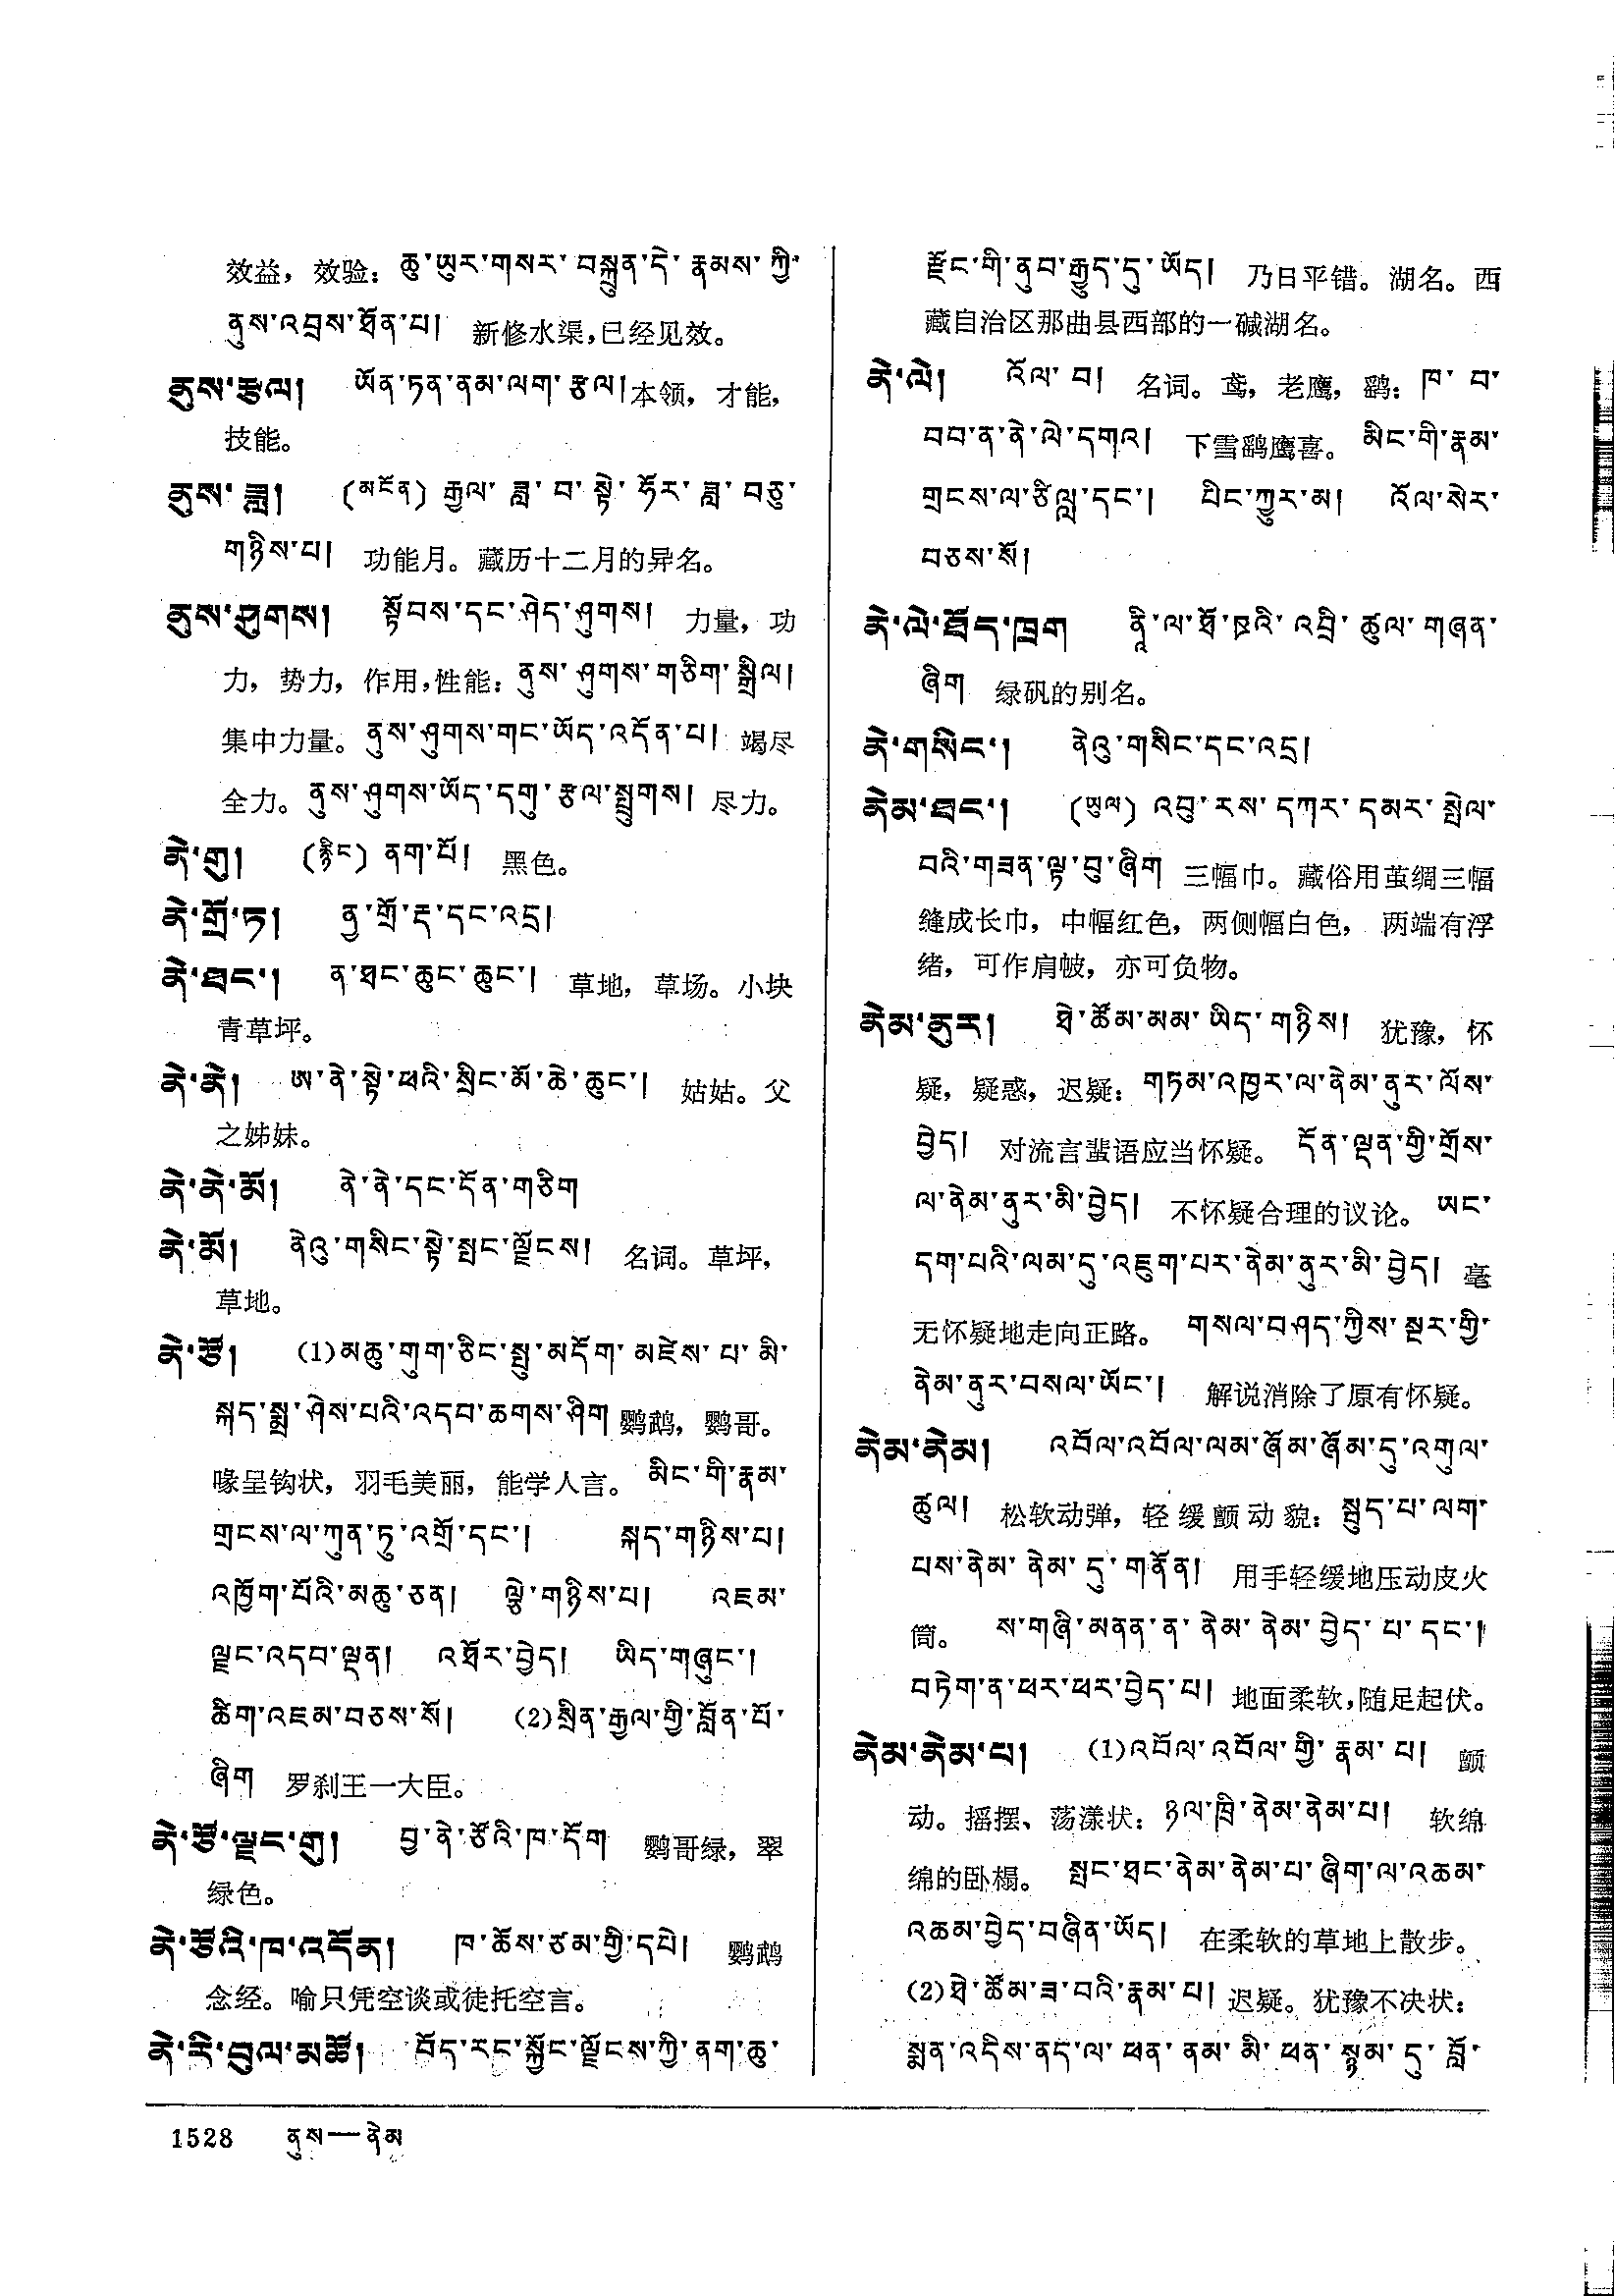 效益，效验：ཆུ་ཡུར་གསར་བསྐྲུན་དེ་རྣམས་ཀྱི་
ནུས་འབྲས་ཐོན་པ། 新修水渠，已经见效。
ནུས་རྩལ། ཡོན་ཏན་ནམ་ལག་རྩལ།本领，才能，
技能。
ནུས་ཟླ། (མངོན) རྒྱལ་ཟླ་བ་སྟེ་ཧོར་ཟླ་བཅུ་
གཉིས་པ། 功能月。藏历十二月的异名。
ནུས་ཤུགས། སྟོབས་དང་ཤེད་ཤུགས། 力量，功
力，势力，作用，性能：ནུས་ཤུགས་གཅིག་སྒྲིལ།
集中力量。ནུས་ཤུགས་གང་ཡོད་འདོན་པ། 竭尽
全力。ནུས་ཤུགས་ཡོད་དགུ་རྩལ་སྤྲུགས། 尽力。
ནེ་གུ། (རྙིང) ནག་པོ། 黑色。
ནེ་གྲོ་ཏ། ནྱ་གྲོ་དྷ་དང་འདྲ།
ནེ་ཐང་། ན་ཐང་ཆུང་ཆུང་། 草地，草场。小块
青草坪。
ནེ་ནེ། ཨ་ནེ་སྟེ་ཕའི་སྲིང་མོ་ཆེ་ཆུང་། 姑姑。父
之姊妹。
ནེ་ནེ་མོ། ནེ་ནེ་དང་དོན་གཅིག
ནེ་མོ། ནེའུ་གསིང་སྟེ་སྤང་ལྗོངས། 名词。草坪，
草地。
ནེ་ཙོ། (1)མཆུ་གུག་ཅིང་སྤུ་མདོག་མཛེས་པ་མི་
སྐད་སྨྲ་ཤེས་པའི་འདབ་ཆགས་ཤིག 鹦鹉，鹦哥。
喙呈钩状，羽毛美丽，能学人言。མིང་གི་རྣམ་
གྲངས་ལ་ཀུན་ཏུ་འགྲོ་དང་། སྐད་གཉིས་པ།
འཁྱོག་པོའི་མཆུ་ཅན། ལྕེ་གཉིས་པ། འཇམ་
ལྗང་འདབ་ལྡན། འཐོར་བྱེད། ཡིད་གཞུང་།
ཚིག་འཇམ་བཅས་སོ། (2)སྲིན་རྒྱལ་གྱི་བློན་པོ་
ཞིག 罗刹王一大臣。
ནེ་ཙོ་ལྗང་གུ། བྱ་ནེ་ཙོའི་ཁ་དོག 鹦哥绿，翠
绿色。
ནེ་ཙོའི་ཁ་འདོན། ཁ་ཆོས་ཙམ་གྱི་དཔེ། 鹦鹉
念经。喻只凭空谈或徒托空言。
ནེ་རི་བུལ་མཚོ། བོད་རང་སྐྱོང་ལྗོངས་ཀྱི་ནག་ཆུ་
རྫོང་གི་ནུབ་རྒྱུད་དུ་ཡོད། 乃日平错。湖名。西
藏自治区那曲县西部的一碱湖名。
ནེ་ལེ། འོལ་བ། 名词。鸢，老鹰，鹞：ཁ་བ་
བབ་ན་ནེ་ལེ་དགའ། 下雪鹞鹰喜。མིང་གི་རྣམ་
གྲངས་ལ་ཙིལླ་དང་། པིང་ཀྱུར་མ། འོལ་སེར་
བཅས་སོ།
ནེ་ལེ་ཐོད་ཁྲག ནཱི་ལ་ཐོ་ཊའི་འབྲི་ཚུལ་གཞན་
ཞིག 绿矾的别名。
ནེ་གསིང་། ནེའུ་གསིང་དང་འདྲ།
ནེམ་ཐང་། (ཡུལ) འབུ་རས་དཀར་དམར་སྤེལ་
བའི་གཟན་ལྟ་བུ་ཞིག 三幅巾。藏俗用茧绸三幅
缝成长巾，中幅红色，两侧幅白色，两端有浮
绪，可作肩帔，亦可负物。
ནེམ་ནུར། ཐེ་ཚོམ་མམ་ཡིད་གཉིས། 犹豫，怀
疑，疑惑，迟疑：གཏམ་འཁྱར་ལ་ནེམ་ནུར་ལོས་
བྱེད། 对流言蜚语应当怀疑。དོན་ལྡན་གྱི་གྲོས་
ལ་ནེམ་ནུར་མི་བྱེད། 不怀疑合理的议论。ཡང་
དག་པའི་ལམ་དུ་འཇུག་པར་ནེམ་ནུར་མི་བྱེད། 毫
无怀疑地走向正路。གསལ་བཤད་ཀྱིས་སྔར་གྱི་
ནེམ་ནུར་བསལ་ཡོང་། 解说消除了原有怀疑。
ནེམ་ནེམ། འབོལ་འབོལ་ལམ་ཞོམ་ཞོམ་དུ་འགུལ་
ཚུལ། 松软动弹，轻缓颤动貌：སྦུད་པ་ལག་
པས་ནེམ་ནེམ་དུ་གནོན། 用手轻缓地压动皮火
筒。ས་གཞི་མནན་ན་ནེམ་ནེམ་བྱེད་པ་དང་།
བཏེག་ན་ཕར་ཕར་བྱེད་པ། 地面柔软，随足起伏。
ནེམ་ནེམ་པ། (1)འབོལ་འབོལ་གྱི་རྣམ་པ། 颤
动。摇摆、荡漾状：ཉལ་ཁྲི་ནེམ་ནེམ་པ། 软绵
绵的卧榻。སྤང་ཐང་ནེམ་ནེམ་པ་ཞིག་ལ་འཆམ་
འཆམ་བྱེད་བཞིན་ཡོད། 在柔软的草地上散步。
(2)ཐེ་ཚོམ་ཟ་བའི་རྣམ་པ། 迟疑。犹豫不决状：
སྨན་འདིས་ནད་ལ་ཕན་ནམ་མི་ཕན་སྙམ་དུ་བློ་
1528 ནུས—ནེམ